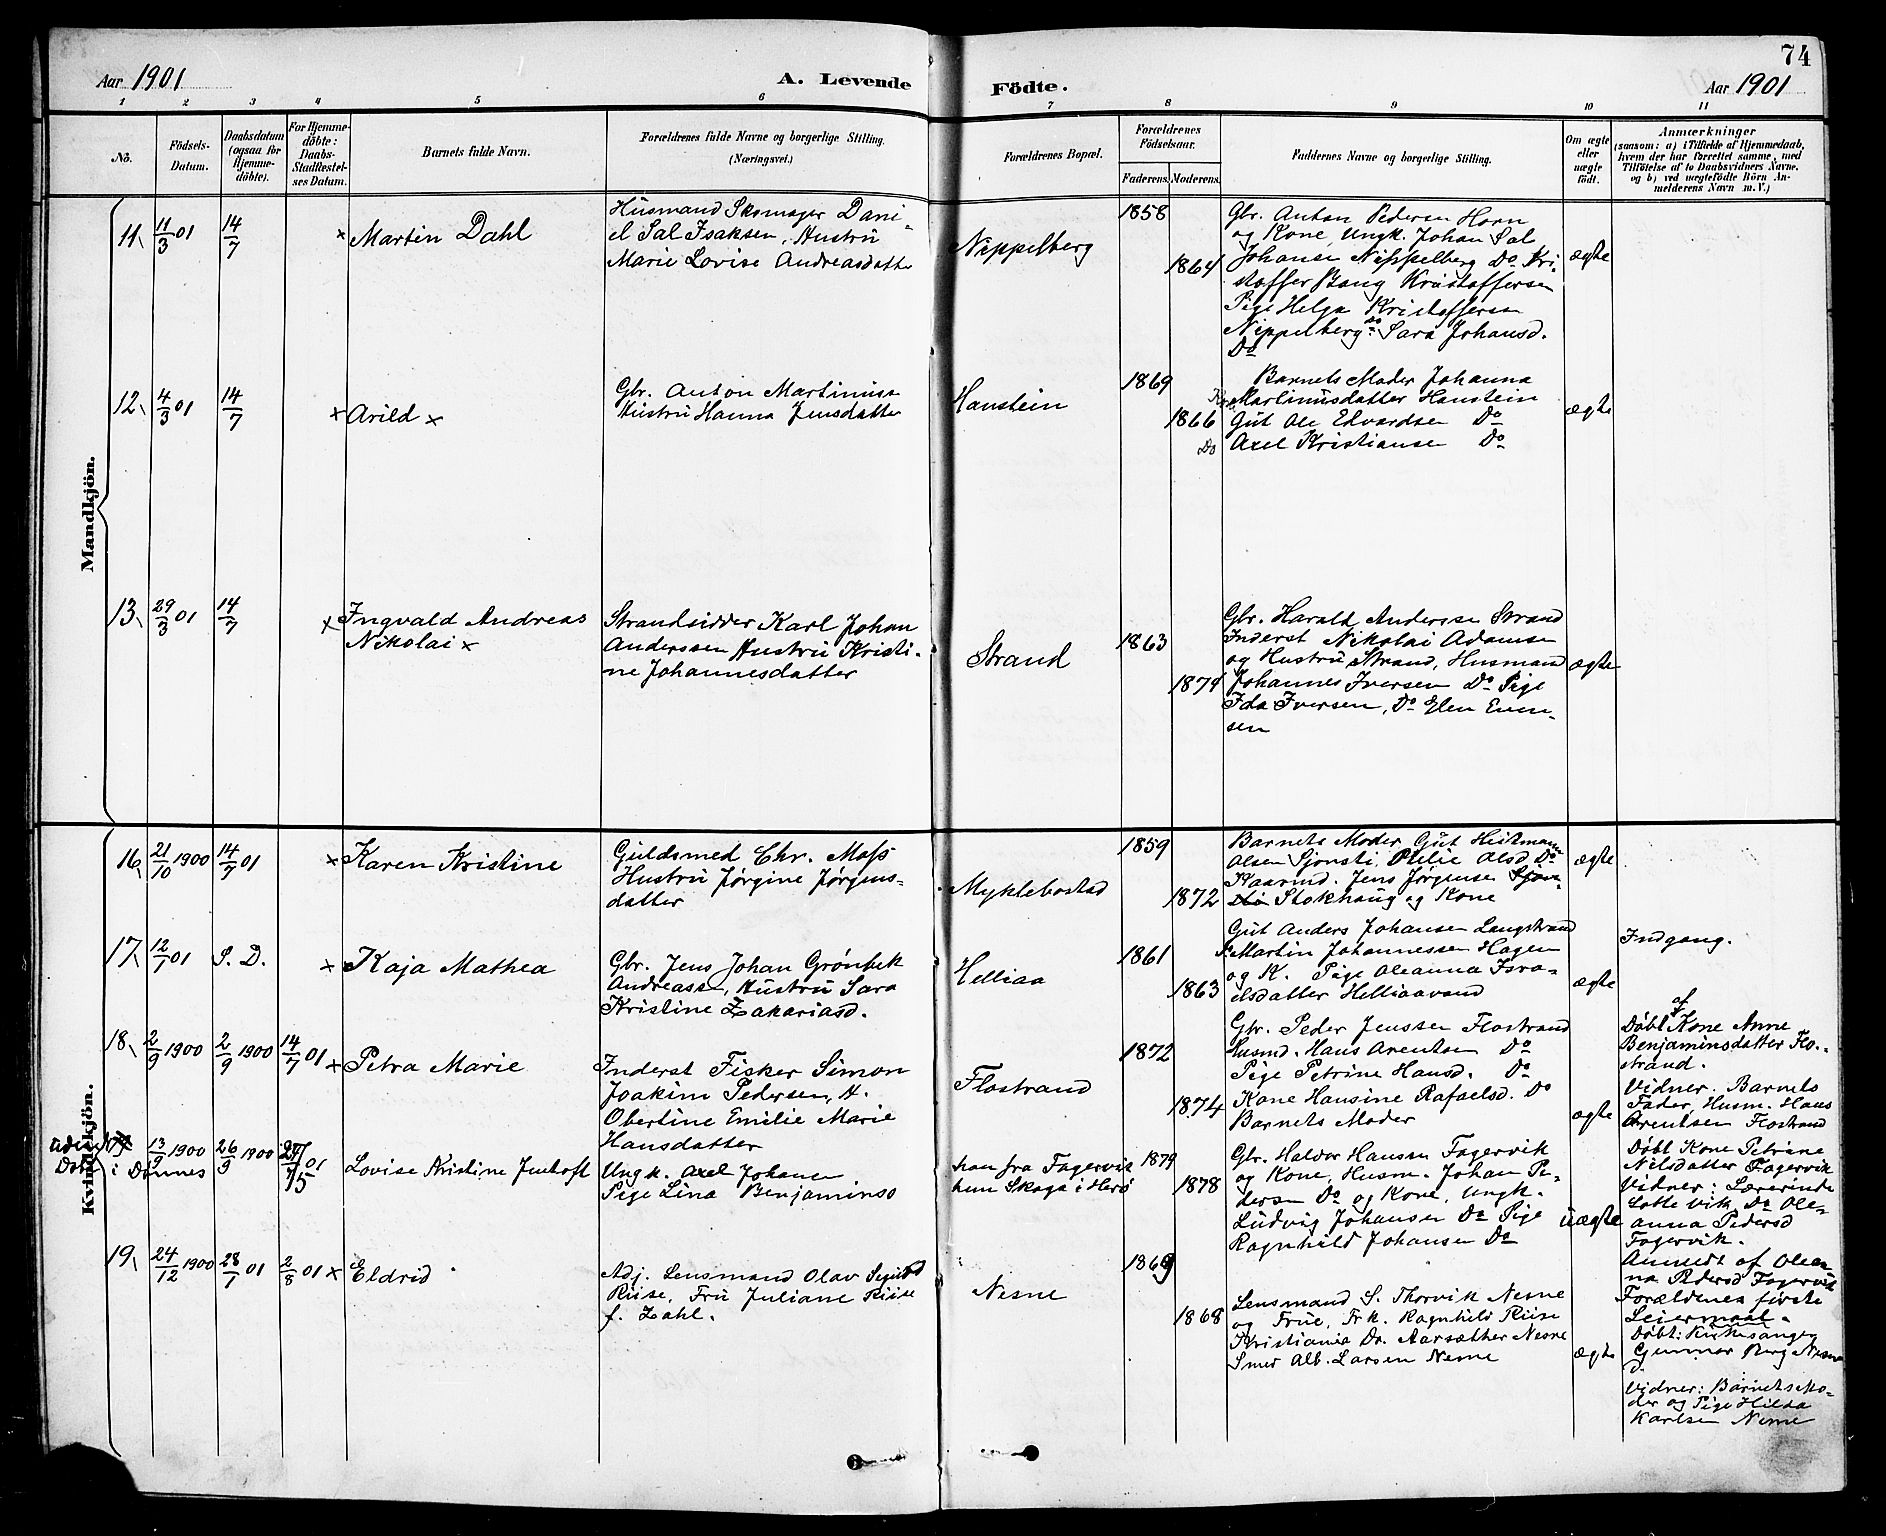 74
Aar 1901
A. Levende
Födte.
Aar 1901
1 2 3 4 5 6 7 8 9 10 11
No.
Födsels-
Datum.
Daabsdatum
(ogsaa for
Hjemme-
döbte).
For Hjemme-
döbte:
Daabs-
Stadfæstel-
ses Datum.
Barnets fulde Navn.
Forældrenes fulde Navne og borgerlige Stilling.
(Næringsvei.)
Forældrenes Bopæl.
Forældrenes
Födselsaar.
Faderens. Moderens.
Faddernes Navne og borgerlige Stilling.
Om ægte
eller
uægte
født.
Anmærkninger
(saasom: a) i Tilfælde af Hjemmedaab,
hvem der har forrettet samme, med
Tilföielse af to Daabsvidners Navne.
og b) ved uægtefödte Börn An-
melderens Navn m. V.)
Mandkjön.
11 11/3 01 14/7 × Martin Dahl
Husmand Skomager Dani-
el Sal Isaksen, Hustru
Marie Lovise Andreasdatter
Nippelberg
1858
1864
Gbr. Anton Pedersen Horn
og Kone, Ungk. Johan Sal
Johansen Nippelberg Do Kri-
stoffer Bang Kristoffersen
Pige Helga Kristoffersen
Nippelberg Do Sara Johansd.
Do
ægte
12 4/3 01 14/7 × Arild ×
Gbr. Anton Martinuss
Hustru Hanna Jensdatter
Hanstein
1869
1866
Barnets Moder Johanna
Martinusdatter Hanstein
Gut Ole Edvardsen Do
Do Axel Kristiansen Do
ægte
13 29/3 01 14/7 × Ingvald Andreas
Nikolai ×
Strandsidder Karl Johan
Anderssen Hustru Kristi-
ne Johannesdatter
Strand
1863
1874
Gbr. Harald Andersse Strand
Inderst Nikolai Adamsen
og Hustru Strand, Husmand
Johannes Iversen Do Pige
Ida Iversen, Do Elen Even-
sen
ægte
Kvindekjön.
16 21/10 1900 14/7 01 × Karen Kristine
Guldsmed Chr. Moss
Hustru Jørgine Jørgens-
datter
Myklebostad
1859
1872
Barnets Moder Gut
Olsen Sjonsti, Olsd. Do
Jens Jørgensen
Stokhaug og Kone
ægte
17 12/1 01 S. D. × Kaja Mathea
Gbr. Jens Johan Grønbek
Andreassen, Hustru Sara
Kristine Zakariasd.
Helliaa
1861
1863
Gut Anders Johansen Langstrand
Martin Johannessen Hagen
og K. Pige Oleanna Isra-
elsdatter Helliaavand
ægte
Indgang.
18 2/9 1900 2/9 1900 14/7 01 × Petra Marie
Inderst Fisker Simon
Joakim Pedersen, H.
Obertine Emilie Marie
Hansdatter
Flostrand
1872
1874
Gbr. Peder Jenssen Flostrand
Husmd. Hans Arentsen Do
Pige Petrine Hansd. Do
Kone Hansine Rafaelsd. Do
Barnets Moder
ægte
Døbt af Kone Anne
Benjaminsdatter Flo-
strand.
Vidner: Barnets
Fader, Husm. Hans
Arentsen Flostrand
Døbt i Dønnes
13/9 1900 26/9 1900 01 Lovise Kristine Jenhoft
Ungk. Axel Johansen
Pige Lina Benjamins
han fra Fagervik
hun Skaga i Herø
1879
1878
Gbr. Haldor Hansen Fagervik
og Kone, Husm. Johan Pe-
dersen Do og Kone, Ungk.
Ludvig Johansen Do Pige
Ragnhild Johansen Do
uægte
Døbt Kone Petrine
Nilsdatter Fagervik
Vidner: Lærerinde
Lotte Vik, Do Ole-
anna Pedersd
Fagervik.
Anmeldt af Olean-
na Pedersd Fagervik
Forældrenes første
Leiermaal.
19 24/12 1900 28/1 01 2/8 01 × Eldrid
Adj. Lensmand Olav Sigurd
Riise, Fru Juliane Riise
f. Zahl.
Nesne
1869
1868
Lensmand S. Thorvik Nesne
og Frue, Frk. Ragnhild Riise
Kristiania Dr. Aarsæther Nesne
Smed Alb. Larsen Nesne
ægte
Døbt: Kirkesanger
Gunnar Berg Nesne
Vidner: Barnets Mo-
der og Pige Hilda
Karlsen Nesne